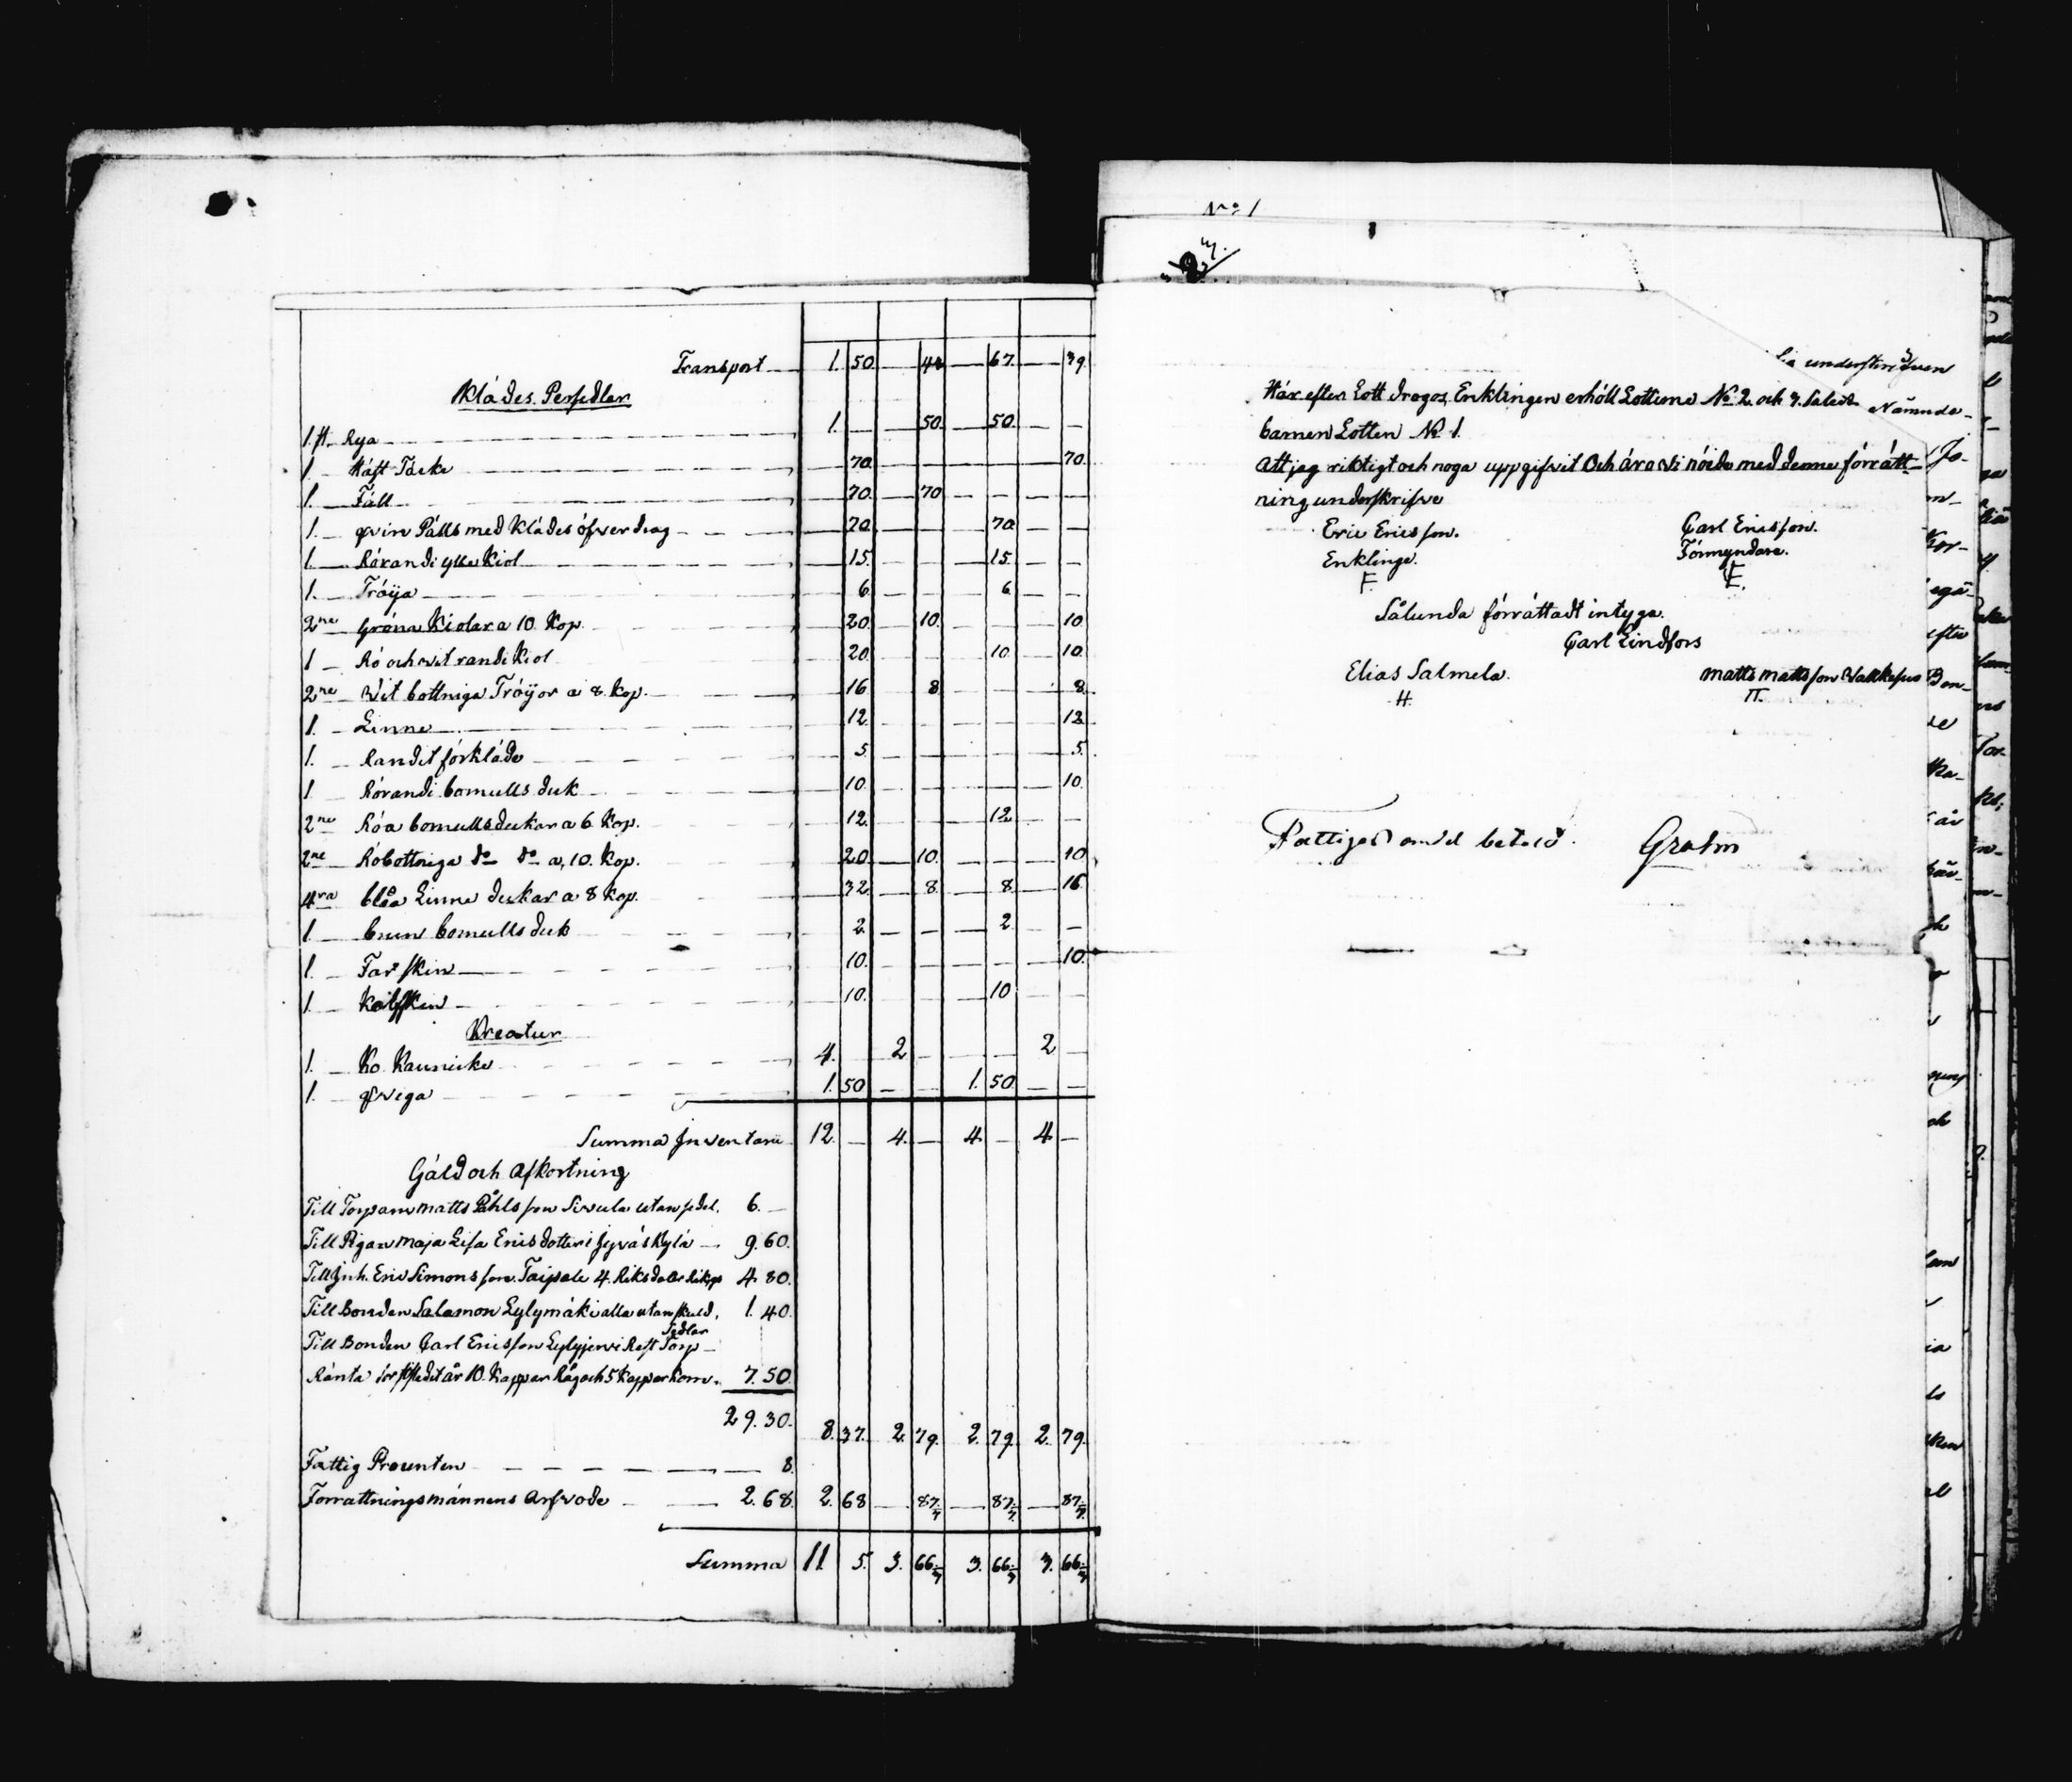 Transport 1. 50. — 43 — 67. — 39.
Klädes Persedlar
1. st. Rya 1. — — 50. — 50. — —
1. Häst Täcke — 70. — — — — — 70.
1. Fäll — 70. — 70 — — — —
1. qvin Pälls med Klädes öfverdrag — 70. — — — 70 — —
1. Rörandi ylle Kiol — 15. — — — 15. — —
1. Tröija — 6. — — — 6. — —
2ne Gröna Kiolar a 10. Kop. 20. — 10. — — — 10.
1 Rö och vit randi Kiol 20. — — — 10. — 10.
2ne Vit bottniga Tröijor a 8. Kop. 16. — 8. — — — 8.
1. Linne 12. — — — — — 12.
1. Randit förkläde 5. — — — — — 5.
1. Rörandi bomulls duk 10. — — — — — 10.
2ne Röa bomullsdukar a 6 Kop. 12. — — — 12. — —
2ne Röbottniga do do a, 10. Kop. 20. — 10. — — — 10.
4ra blåa Linne dukar a 8 Kop. 32. — 8. — 8. — 16.
1. brun bomulls duk 2. — — — 2. — —
1. Får skin 10. — — — — — 10.
1. Kalfskin 10. — — — 10 — —
Kreatur
1. Ko Kaunicke 4. 2. — — — 2 —
1. qviga 1. 50. — — 1. 50. — —
Summa Inventarii 12. — 4. — 4. — 4. —
Gäld och Afkortning
Till Torparn Matts Påhlsson Sivula utan sedel. 6. —
Till Pigan Maja Lisa Ericsdotter i Jyväskylä — 9. 60.
Till Inh. Eric Simonsson Taipale 4. Riksdaler Rikgs 4. 80.
Till Bonden Salamon Lylymäki alla utan skuld. 1. 40.
Sedlar
Till Bonden Carl Ericsson Lylyjervi Rest Torp-
Ränta för åtskledit år 10. Kappar Råg och 5 Kappar Korn. 7. 50.
29. 30. 8. 37. 2. 79. 2. 79. 2. 79.
Fattig Procenten 8.
Forrattningsmännens Arfvode 2. 68. 2. 68 — 87 — 87 — 87
Summa 11 5. 3. 66 3. 66 3. 66
No 1
underskrifven
Här efter Lott drogos, Enklingen erhöll Lotterne No 2. och 3. Saledt
Nämnde-
barnen Lotten No 1.
Att jag riktigt och noga uppgifvit Och äro vi nöida med denne förrätt-
ning, underskrifve
Eric Ericsson. Carl Ericsson.
Enklinge. Förmyndare.
F. E.
Sålunda förrättadt intyga.
Carl Lindfors
Elias Salmela. Matts Mattsson Vallkasuo
H. TT.
Fattiges andel betald. Grahn